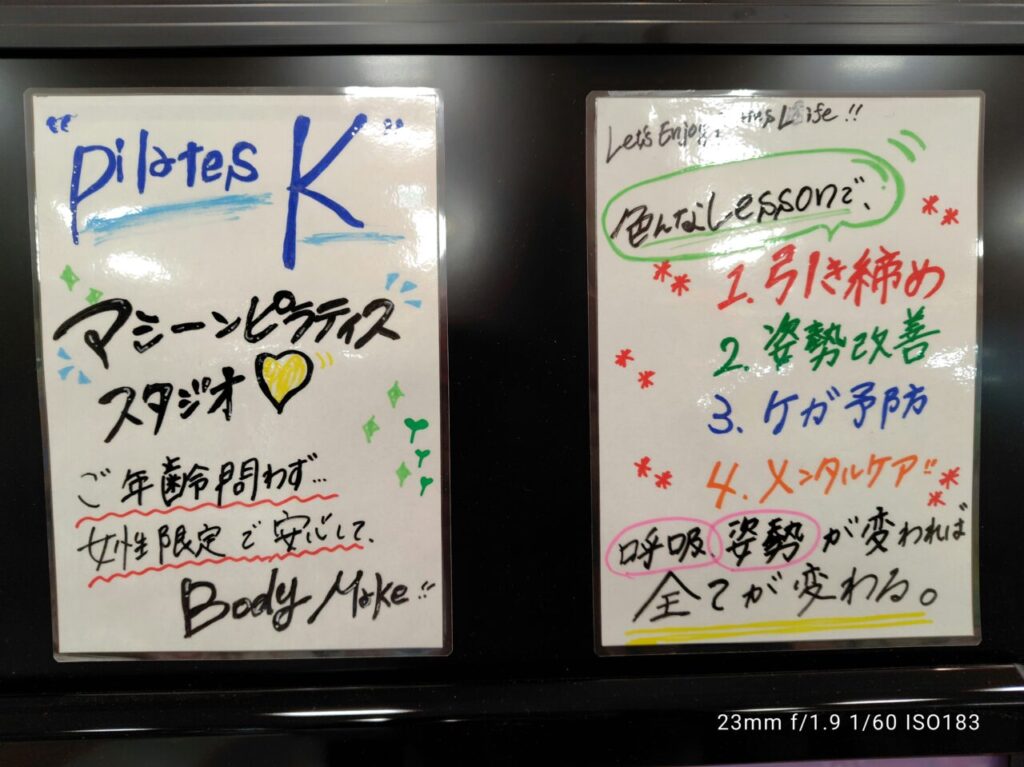 "Pilates K"
マシーンピラティス
スタジオ
ご年齢問わず…
女性限定で安心して、
Body Make!!
Let's Enjoy Life!!
色んなLessonで、
1.引き締め
2.姿勢改善
3.ケガ予防
4.メンタルケア!!
呼吸、姿勢が変われば
全てが変わる。
23mm f/1.9 1/60 ISO183